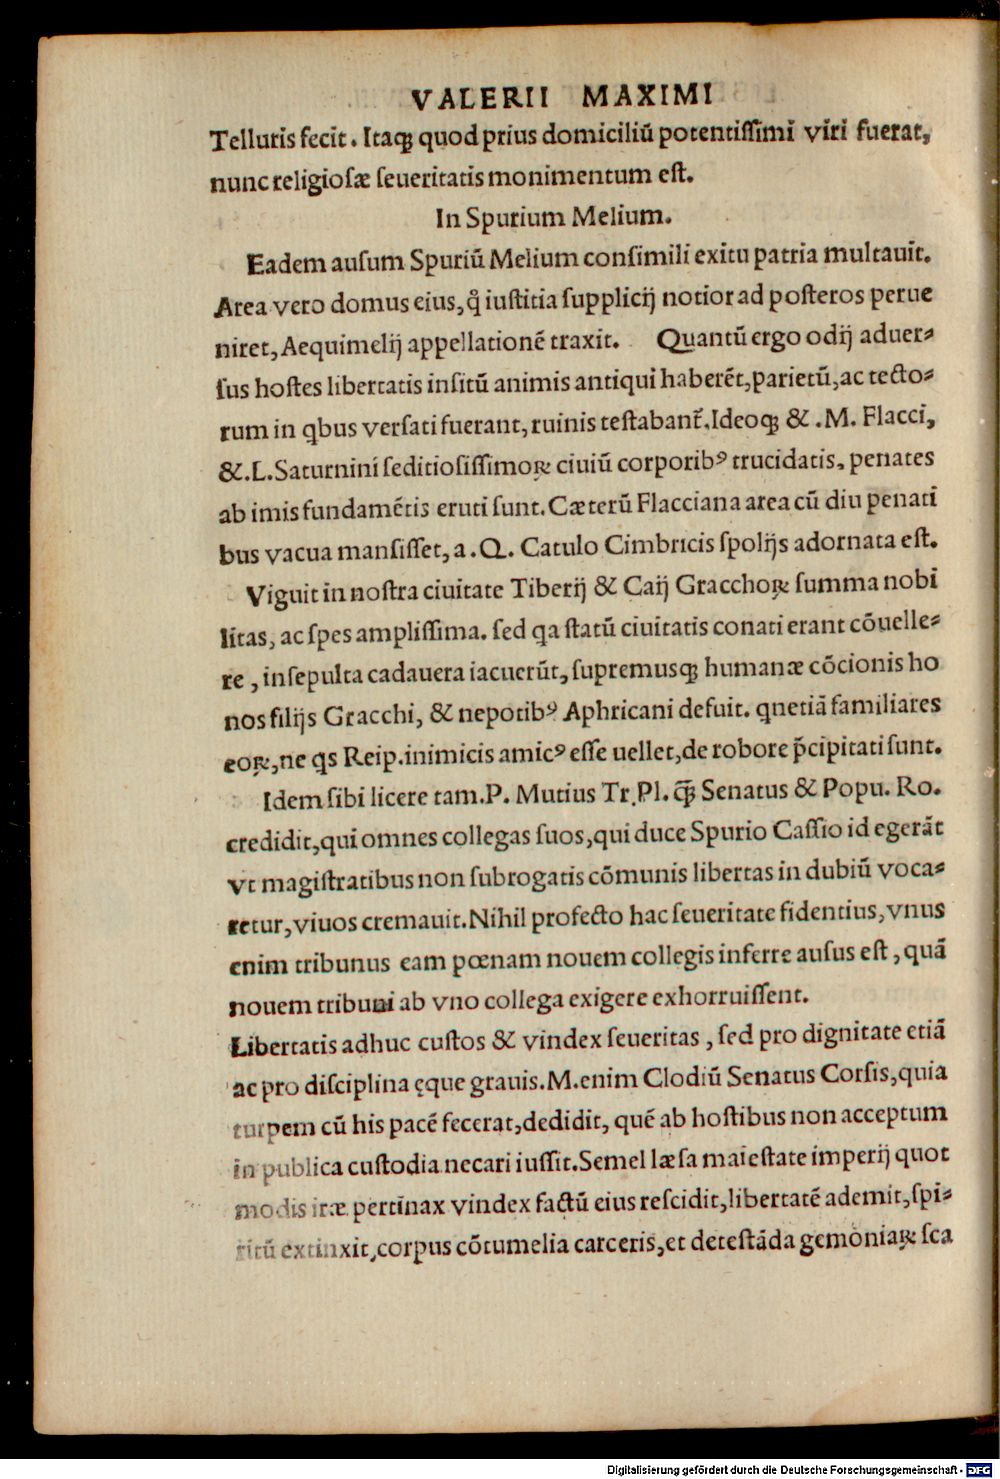 VALERII MAXIMI
Telluris fecit. Itaq; quod prius domiciliū potentiſſimi viri fuerat,
nunc religioſæ ſeueritatis monimentum eſt.
In Spurium Melium.
Eadem auſum Spuriū Melium conſimili exitu patria multauit.
Area vero domus eius, qͦ iuſtitia ſupplicij notior ad poſteros perue
niret, Aequimelij appellationē traxit. Quantū ergo odij aduer⸗
ſus hoſtes libertatis inſitū animis antiqui haberēt, parietū, ac tecto⸗
rum in qbus verſati fuerant, ruinis teſtabant᷑. Ideoq; & .M. Flacci,
&.L.Saturnini ſeditioſiſſimoꝝ ciuiū corporibꝰ trucidatis, penates
ab imis fundamētis eruti ſunt. Cæterū Flacciana area cū diu penati
bus vacua manſiſſet, a .Q. Catulo Cimbricis ſpolijs adornata eſt.
Viguit in noſtra ciuitate Tiberij & Caij Gracchoꝝ ſumma nobi
litas, ac ſpes ampliſſima. ſed qa ſtatū ciuitatis conati erant cōuelle⸗
re, inſepulta cadauera iacuerūt, ſupremusq; humanæ cōcionis ho
nos filijs Gracchi, & nepotibꝰ Aphricani defuit. qnetiā familiares
eoꝝ, ne qs Reip. inimicis amicꝰ eſſe uellet, de robore p̄cipitati ſunt.
Idem ſibi licere tam.P. Mutius Tr.Pl. q̄ꝫ Senatus & Popu. Ro.
credidit, qui omnes collegas ſuos, qui duce Spurio Caſſio id egerāt
vt magiſtratibus non ſubrogatis cōmunis libertas in dubiū voca⸗
retur, viuos cremauit. Nihil profecto hac ſeueritate fidentius, vnus
enim tribunus eam pœnam nouem collegis inferre auſus eſt, quā
nouem tribuni ab vno collega exigere exhorruiſſent.
Libertatis adhuc cuſtos & vindex ſeueritas, ſed pro dignitate etiā
ac pro diſciplina ęque grauis. M. enim Clodiū Senatus Corſis, quia
turpem cū his pacē fecerat, dedidit, quē ab hoſtibus non acceptum
in publica cuſtodia necari iuſſit. Semel læſa maieſtate imperij quot
modis iræ pertinax vindex factū eius reſcidit, libertatē ademit, ſpi⸗
ritū extinxit, corpus cōtumelia carceris, et deteſtāda gemoniaꝝ ſca
Digitalisierung gefördert durch die Deutsche Forschungsgemeinschaft - DFG